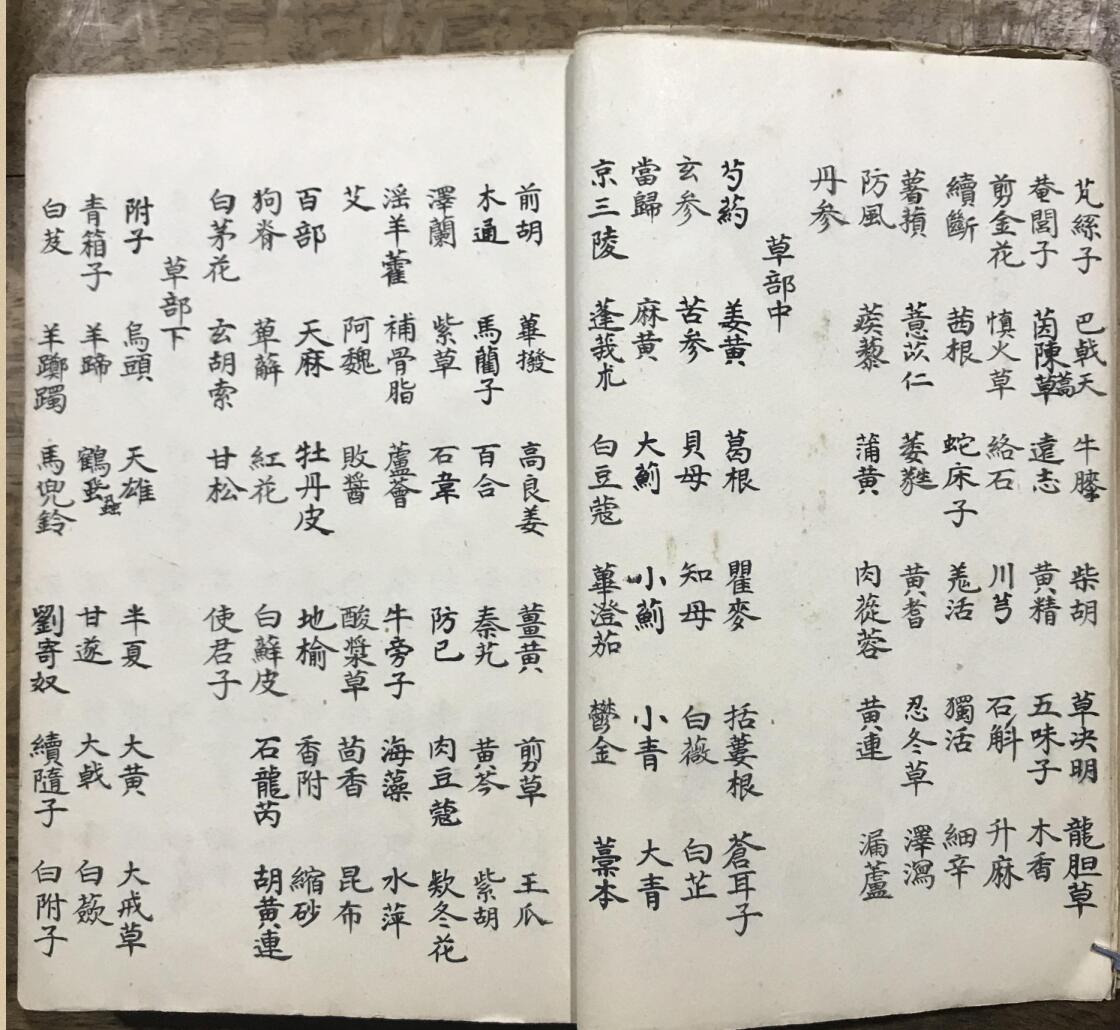 兎絲子 巴戟天 牛膝 柴胡 草决明 龍胆草
菴閭子 茵陳草蒿 遠志 黄精 五味子 木香
剪金花 慎火草 絡石 川芎 石斛 升麻
續斷 茜根 蛇床子 羗活 獨活 細辛
蕃蘋 薏苡仁 萎蕤 黄耆 忍冬草 澤瀉
防風 蒺藜 蒲黄 肉蓯蓉 黄連 漏蘆
丹参
草部中
芍葯 姜黄 葛根 瞿麥 括蔞根 蒼耳子
玄参 苦参 貝母 知母 白薇 白芷
當歸 麻黄 大薊 小薊 小青 大青
京三陵 蓬莪朮 白豆蔻 蓽澄茄 鬱金 藁本
前胡 蓽撥 高良姜 薑黄 剪草 王瓜
木通 馬藺子 百合 秦艽 黄芩 紫胡
澤蘭 紫草 石韋 防已 肉豆蔻 欵冬花
淫羊藿 補骨脂 蘆薈 牛旁子 海藻 水萍
艾 阿魏 敗醬 酸漿草 茴香 昆布
百部 天麻 牡丹皮 地榆 香附 縮砂
狗脊 萆薢 紅花 白蘚皮 石龍芮 胡黄連
白茅花 玄胡索 甘松 使君子
草部下
附子 烏頭 天雄 半夏 大黄 大戒草
青箱子 羊蹄 鶴虱 甘遂 大戟 白蘞
白芨 羊躑躅 馬兜鈴 劉寄奴 續隨子 白附子